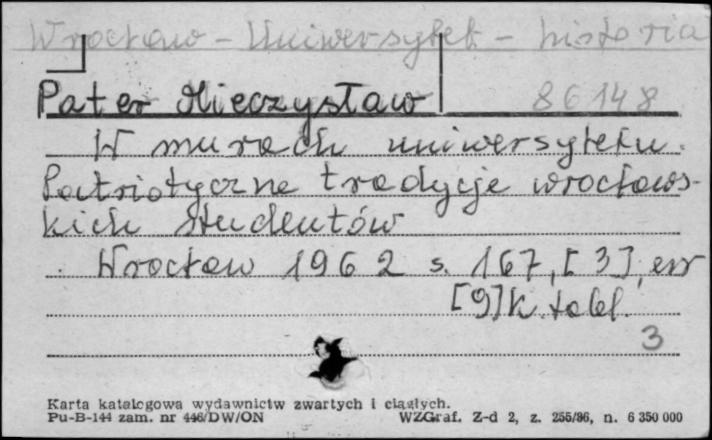 Wrocław - Uniwersytet - historia
Pater Mieczysław 86148
W murach uniwersytetu.
Patriotyczne tradycje wrocławs-
kich studentów
Wrocław 1962 s. 167, [3], err
[9] k. tabl.
3
Karta katalogowa wydawnictw zwartych i ciągłych.
Pu-B-144 zam. nr 446/DW/ON WZGraf. Z-d 2, z. 255/86, n. 6 350 000